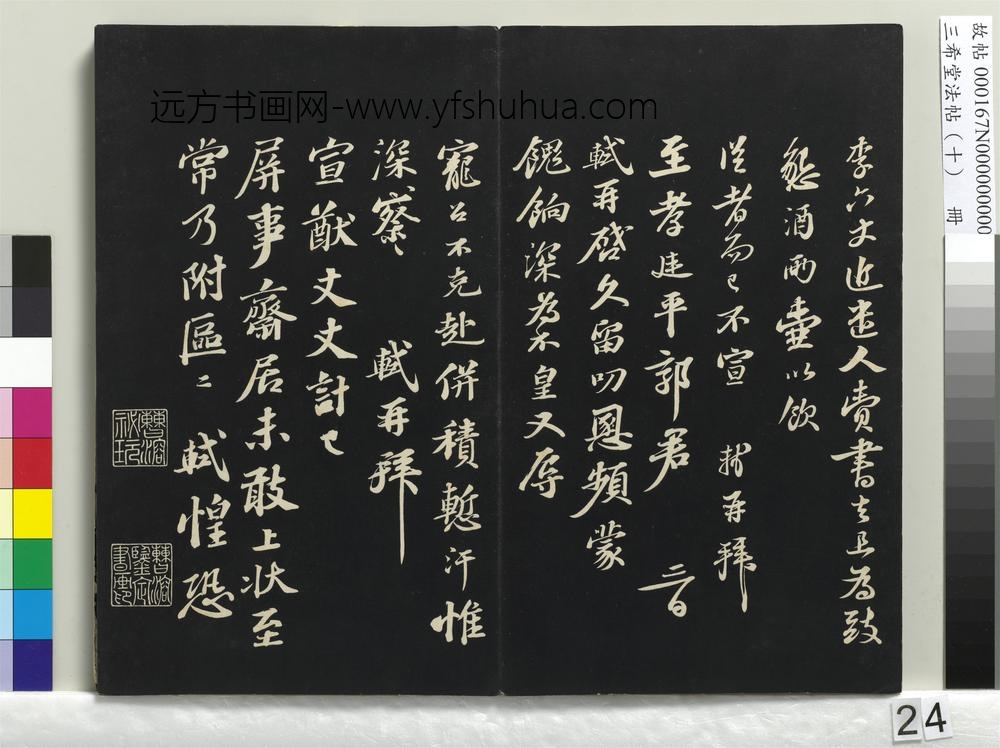 李六丈近遣人賫書去且為致
懇酒兩壷以飲
從者而已不宣 軾再拜
至孝廷平郭君
二日
軾再啓久留叨恩頻蒙
餽餉深為不皇又辱
寵召不克赴併積慙汗惟
深察深察 軾再拜
宣猷丈丈計已
屏事齋居未敢上状至
常乃附區區 軾惶恐
曹溶秘玩
曹溶鑒定書畫
远方书画网-www.yfshuhua.com
故帖 000167N000000000
三希堂法帖(十) 冊
24